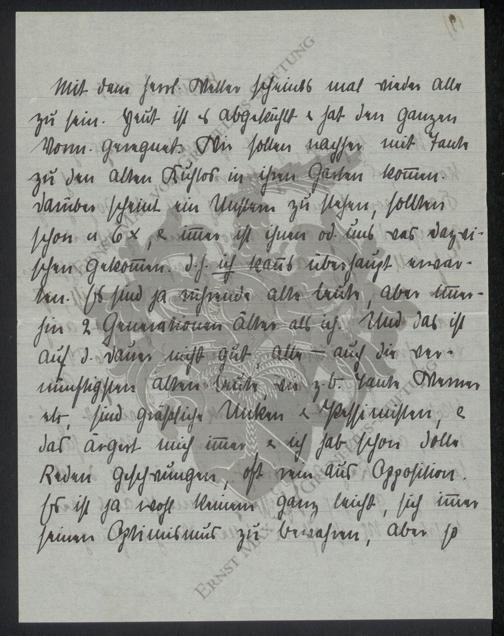 Mit dem herrl. Wetter scheints mal wieder alle
zu sein. Heut ist es abgekühlt & hat den ganzen
Vorm. geregnet. Wir sollen nachher mit Tante
zu den alten in ihren Garten kommen.
Darüber scheint ein Unstern zu stehen, sollten
schon a 6x, & immer ist ihnen od. uns was dazwi-
schen gekommen. d.h. ich kanns überhaupt erwar-
ten. Es sind ja rührende alte Leute, aber immer-
hin 2 Generationen älter als ich. Und das ist
auf d. Dauer nicht gut, alle – auch die ver-
nünftigsten alten Leute, wie z.b. Tante, Werner
etc, sind grässliche Unken & Pessimisten, &
das ärgert mich immer & ich hab schon dolle
Reden geschwungen, oft rein aus Opposition.
Es ist ja wohl keinem ganz leicht, sich immer
seinen Optimismus zu bewahren, aber so
ERNST MAX VON GRUNELIUS-STIFTUNG